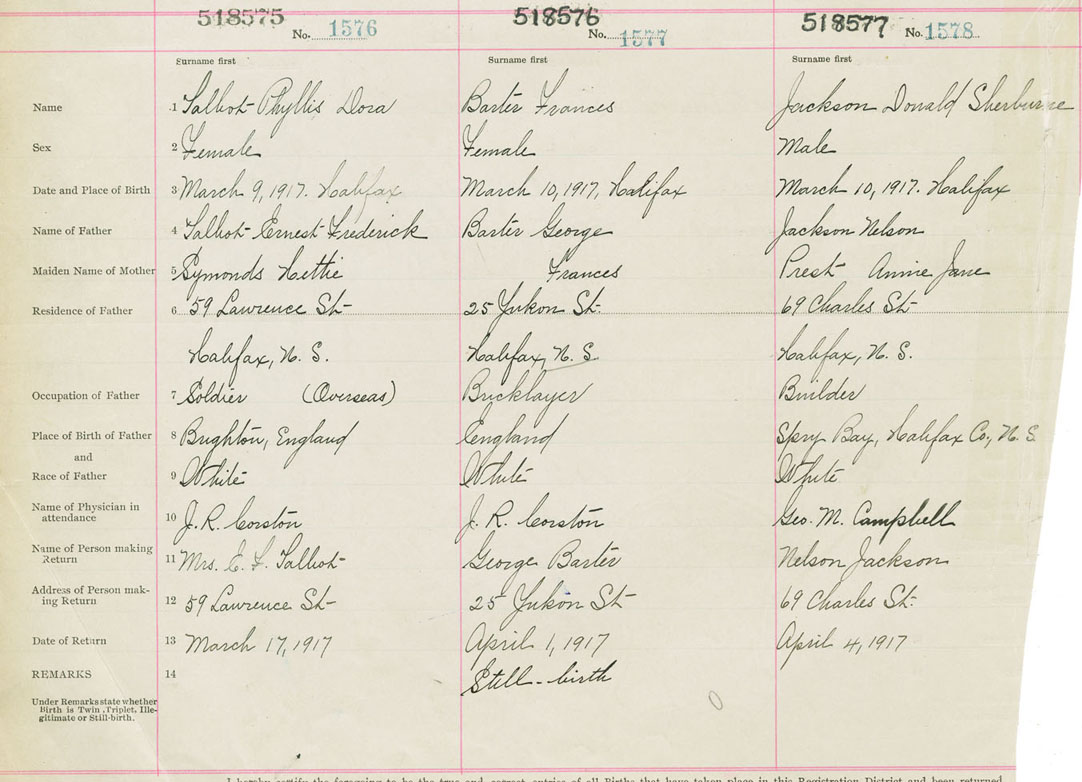 518575 518576 518577
No. 1576 No. 1577 No. 1578
Surname first Surname first Surname first
Name 1 Talbot Phyllis Dora Barter Frances Jackson Donald Sherburne
Sex 2 Female Female Male
Date and Place of Birth 3 March 9, 1917. Halifax March 10, 1917, Halifax March 10, 1917. Halifax
Name of Father 4 Talbot Ernest Frederick Barter George Jackson Nelson
Maiden Name of Mother 5 Symonds Hettie Frances Prest Annie Jane
Residence of Father 6 59 Lawrence St 25 Yukon St. 69 Charles St
Halifax, N. S. Halifax, N. S. Halifax, N. S.
Occupation of Father 7 Soldier (Overseas) Bricklayer Builder
Place of Birth of Father 8 Brighton, England England Spry Bay, Halifax Co., N. S.
and
Race of Father 9 White White White
Name of Physician in attendance 10 J. R. Corston J. R. Corston Geo. M. Campbell
Name of Person making Return 11 Mrs. E. F. Talbot George Barter Nelson Jackson
Address of Person mak-ing Return 12 59 Lawrence St 25 Yukon St 69 Charles St.
Date of Return 13 March 17, 1917 April 1, 1917 April 4, 1917
REMARKS 14 Still-birth
Under Remarks state whether
Birth is Twin, Triplet, Ille-
gitimate or Still-birth.
I hereby certify the foregoing to be the true and correct entries of all Births that have taken place in this Registration District and been returned